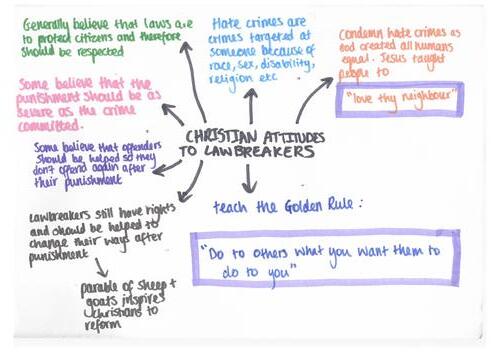 Generally believe that laws are
to protect citizens and therefore
should be respected
Hate crimes are
crimes targeted at
someone because of
race, sex, disability,
religion etc
Condemn hate crimes as
God created all humans
equal. Jesus taught
people to
"love thy neighbour"
Some believe that the
punishment should be as
severe as the crime
committed.
CHRISTIAN ATTITUDES
TO LAWBREAKERS
Some believe that offenders
should be helped so they
don't offend again after
their punishment
Lawbreakers still have rights
and should be helped to
change their ways after
punishment
parable of sheep +
goats inspires
Christians to
reform
teach the Golden Rule:
"Do to others what you want them to
do to you"